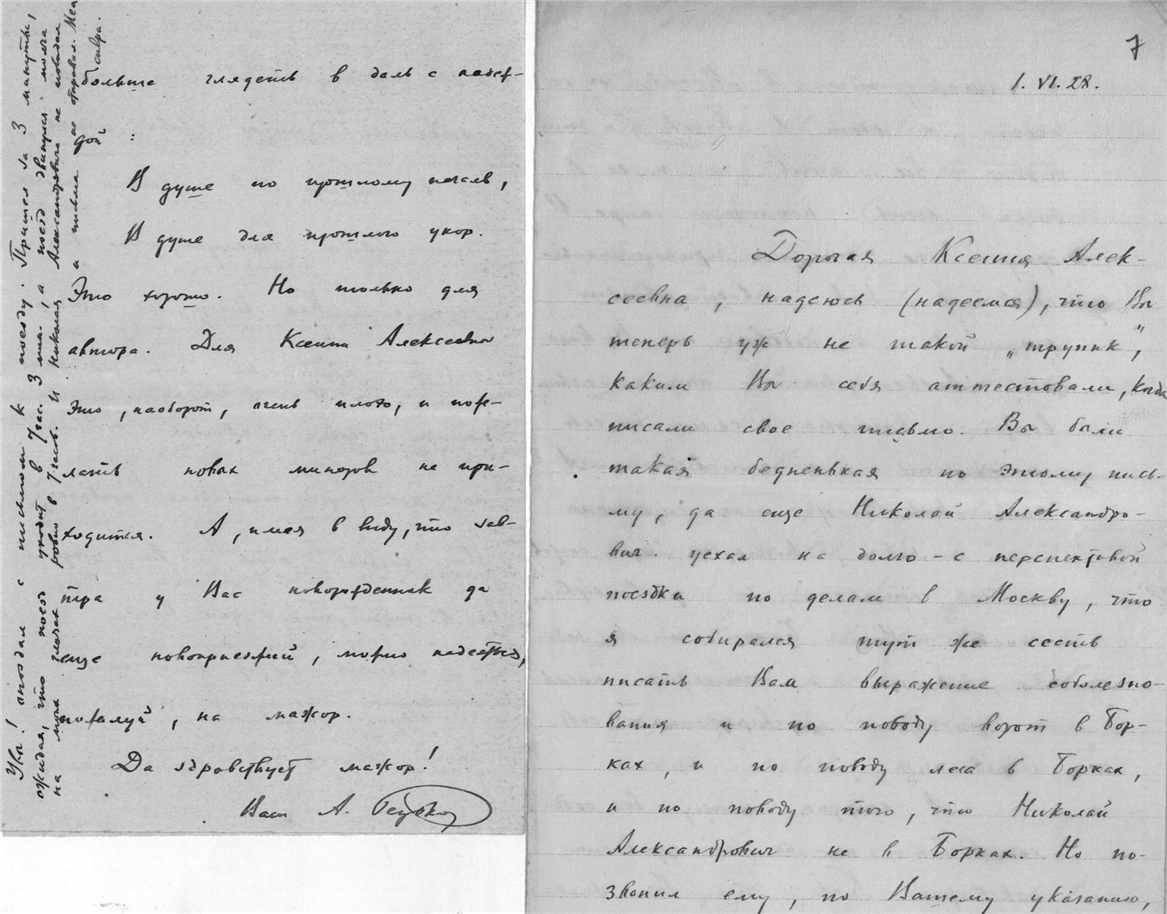 больше глядеть в даль с надеж-
дой:
В душе по прошлому печаль,
В душе для прошлого укор.
Это хорошо. Но только для
автора. Для Ксении Алексеевны
это, наоборот, очень плохо, и поже-
лать новых миноров не при-
ходится. А, имея в виду, что зав-
тра у Вас новорожденник да
еще новоприезжий, можно надеяться,
пожалуй, на мажор.
Да здравствует мажор!
Ваш А.
Увы! опоздал с письмом к поезду. Пришел за 3 минуты,
ожидая, что поезд уходит в 7 час. 3 мин., а поезд двинулся
на моих глазах ровно в 7 часов. И Николая Александровича не повидал
и письма не отправил.
7
1. VI. 28.
Дорогая Ксения Алек-
сеевна, надеюсь (надеемся), что Вы
теперь уж не такой „трупик“,
каким Вы себя аттестовали, когда
писали свое письмо. Вы были
такая бедненькая по этому пись-
му, да еще Николай Александро-
вич уехал на долго – с перспективой
поездки по делам в Москву, что
я собирался тут же сесть
писать Вам выражение соболезно-
вания и по поводу ворот в Бор-
ках, и по поводу леса в Борках,
и по поводу того, что Николай
Александрович не в Борках. Но по-
звонил ему, по Вашему указанию,